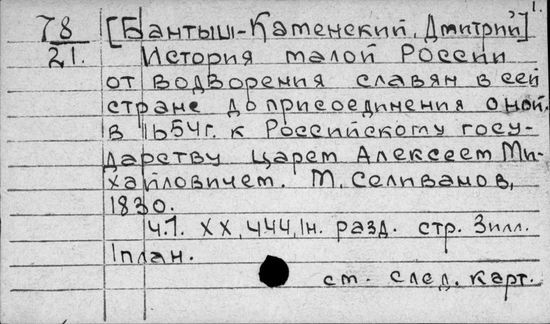 1.
78 [Бантыш-Каменский, Дмитрий]
21. История малой России
от водворения славян в сей
стране до присоединения оной,
в 1654г. к Российскому госу-
дарству царем Алексеем Ми-
хайловичем. М. Селиванов,
1830.
Ч.1. XX, 444, 1н. разд. стр. 3илл.
1план.
см. след. карт.